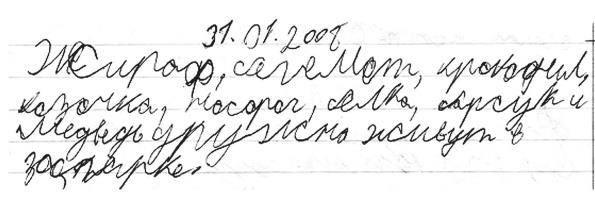 31.01.2008
Жираф, бегемот, крокодил,
козочка, носорог, белка, барсук и
медведь дружно живут в
зоопарке.